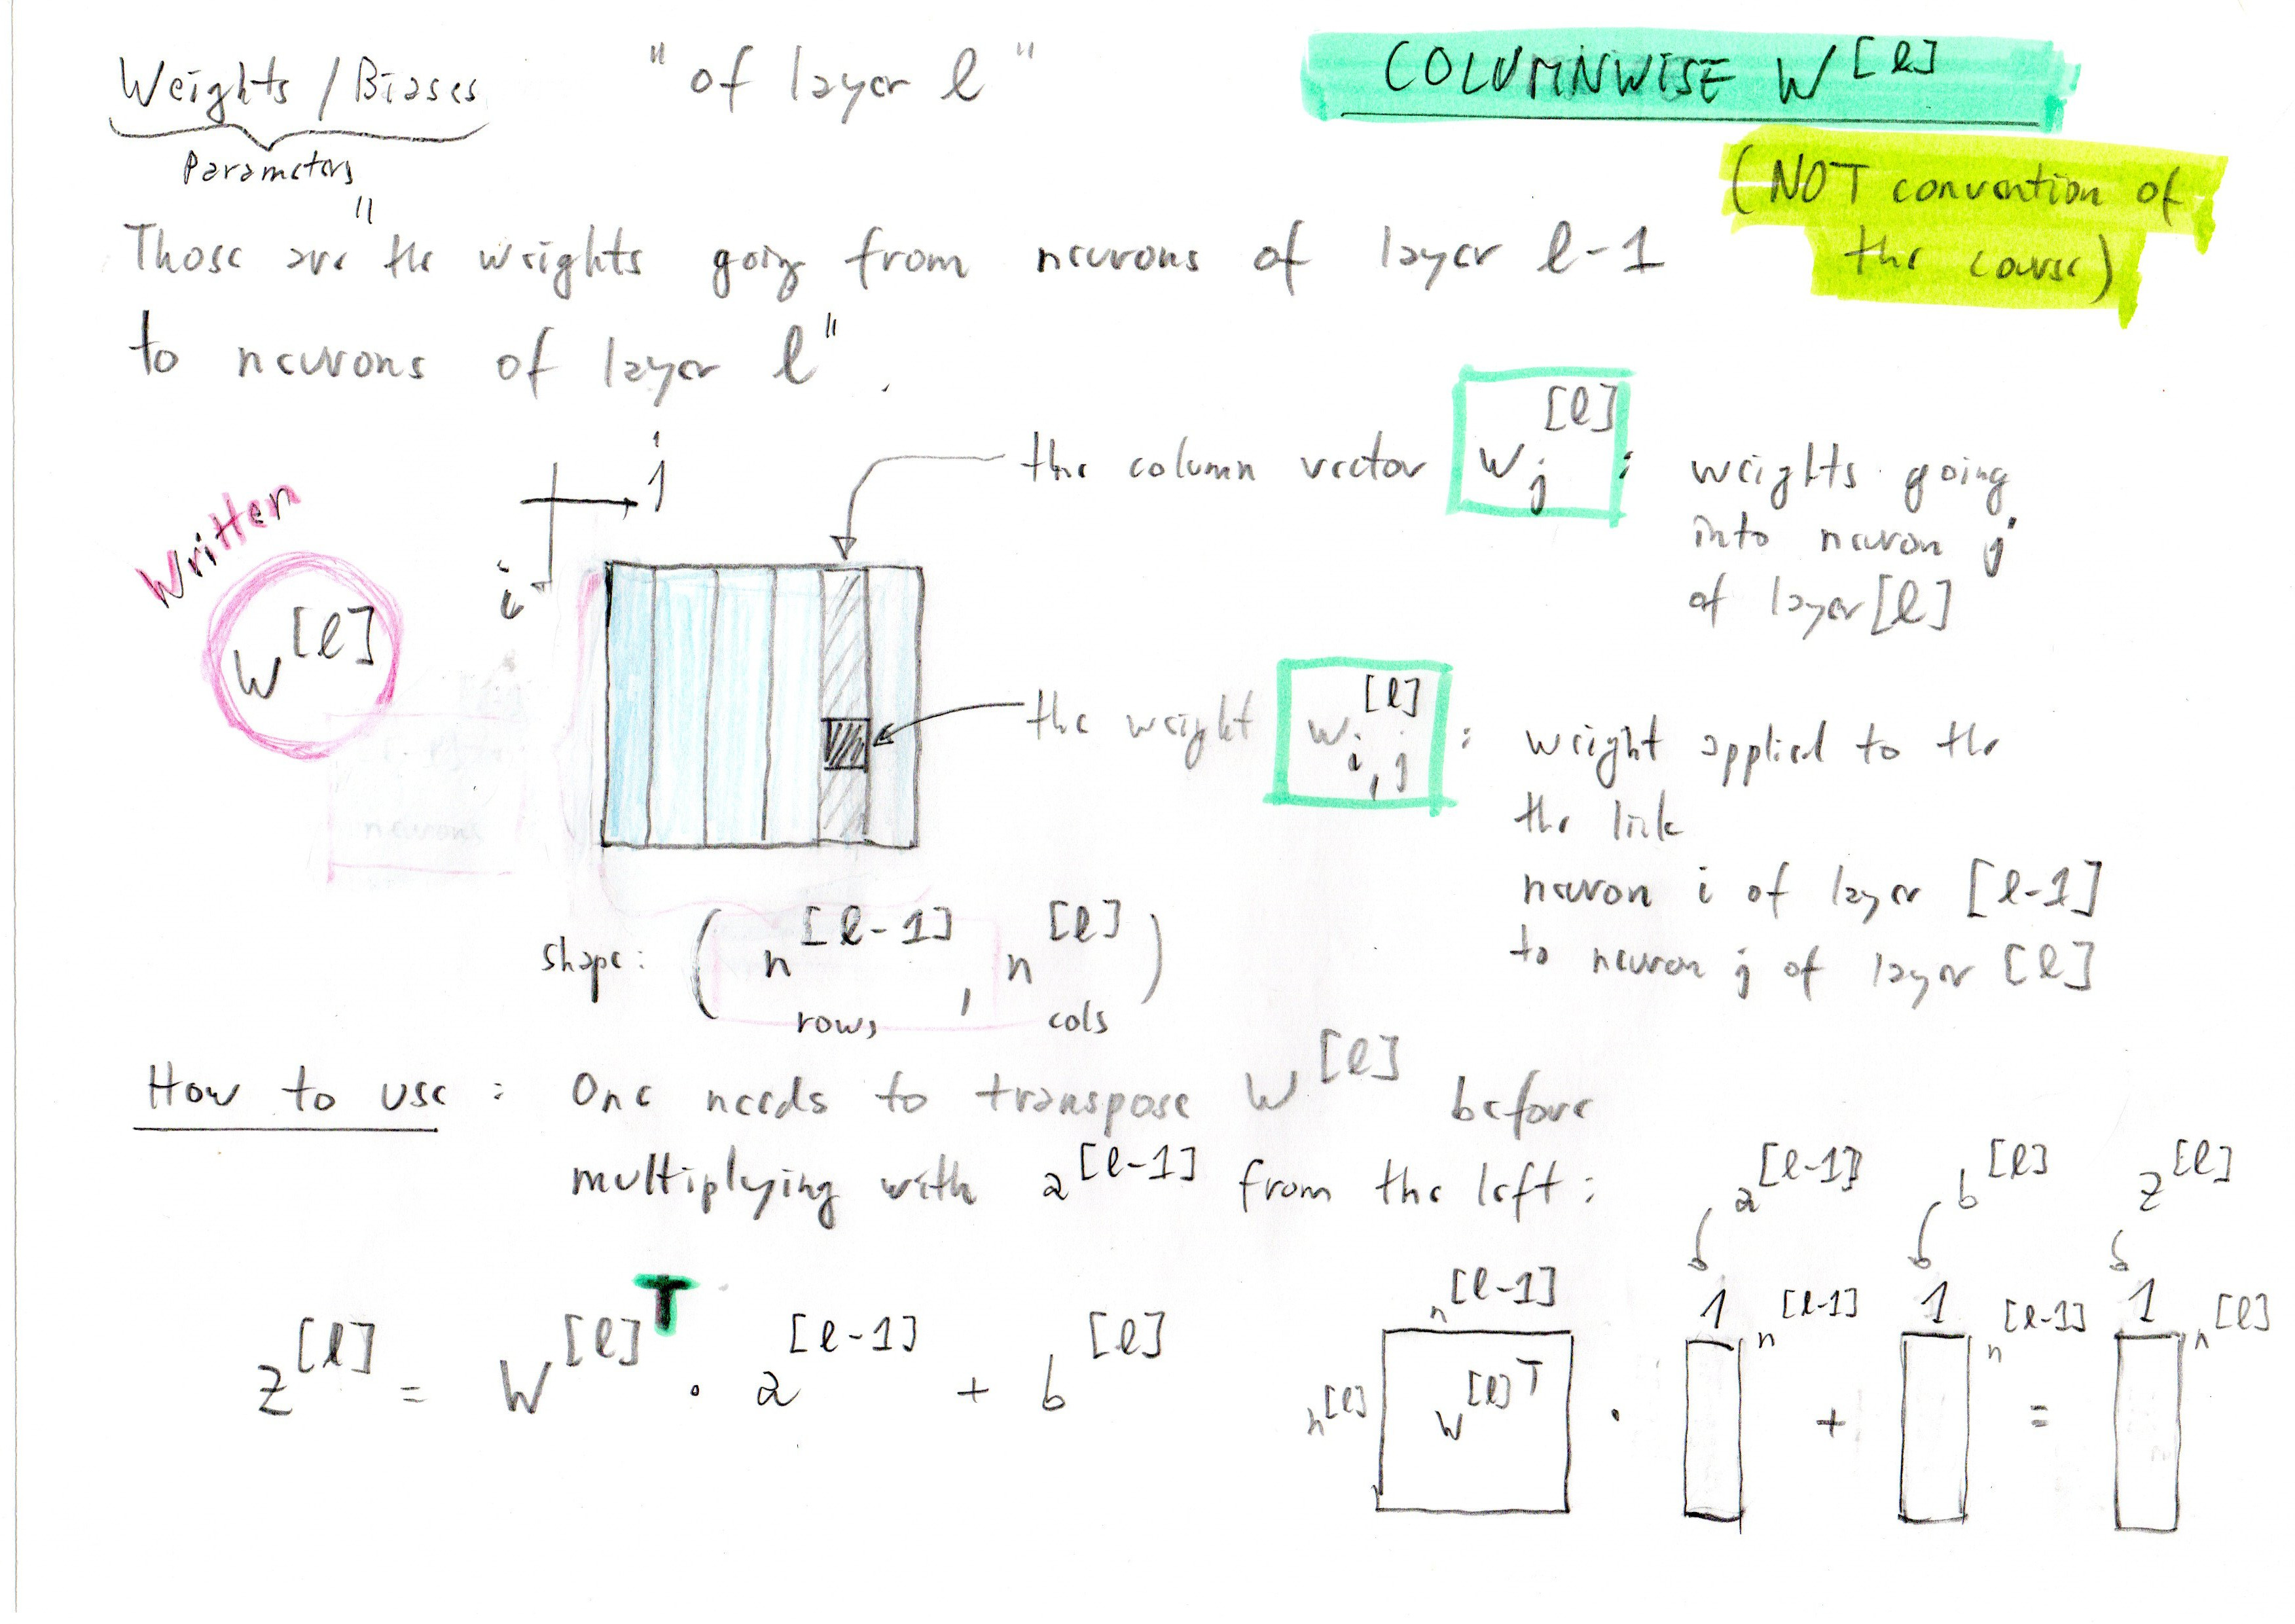 Weights / Biases
Parameters
" of layer l "
COLUMNWISE W^[l]
(NOT convention of
the course)
Those are "the weights going from neurons of layer l-1
to neurons of layer l".
Written
W^[l]
j
i
the column vector w_j^[l] : weights going
into neuron j
of layer [l]
the weight w_i,j^[l] : weight applied to the
the link
neuron i of layer [l-1]
to neuron j of layer [l]
neurons
shape: ( n^[l-1] , n^[l] )
rows cols
How to use : One needs to transpose W^[l] before
multiplying with a^[l-1] from the left :
z^[l] = W^[l]T · a^[l-1] + b^[l]
a^[l-1] b^[l] z^[l]
n^[l-1] 1 n^[l-1] 1 n^[l-1] 1 n^[l]
n^[l] W^[l]T · + =